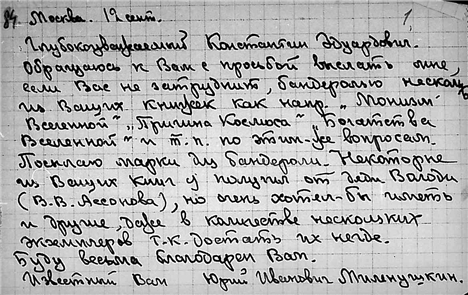 84 Москва. 19 сент. 1
Глубокоуважаемый Константин Эдуардович.
Обращаюсь к Вам с просьбой выслать мне,
если Вас не затруднит, бандеролью несколько
из Ваших книжек как напр. „Монизм
Вселенной" „Причина Космоса" „Богатства
Вселенной" и т.п. по этим-же вопросам.
Посылаю марки для бандероли. Некоторые
из Ваших книг я получил от дяди Володи
(В.В. Ассонова), но очень хотел-бы иметь
и другие, даже в количестве нескольких
экземпляров т.к. достать их негде.
Буду весьма благодарен Вам.
Известный Вам Юрий Иванович Миленушкин.